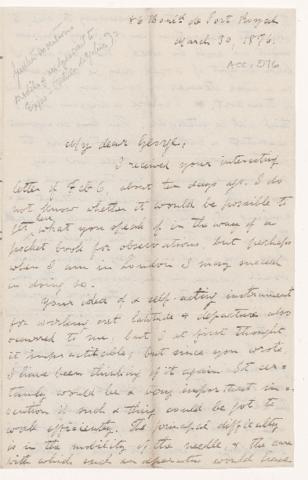 86 Boul^d de Port Royal
March 30, 1876.
ACC. D76
My dear George,
I received your interesting
letter of Feb 6, about ten days ago. I do
not know whether it would be possible to
get here what you speak of in the way of a
pocket book for observations, but perhaps
when I am in London I may succeed
in doing so.
Your idea of a self-acting instrument
for working out latitude & departure also
occurred to me, but I at first thought
it impracticable; but since you wrote
I have been thinking of it again. It cer-
tainly would be a very important in-
vention if such a thing could be got to
work efficiently. The principal difficulty
is in the mobility of the needle, & the care
with which such an apparatus would have